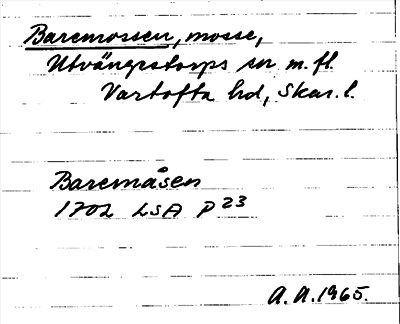 Baremossen, mosse,
Utvängestorps sn m. fl.
Vartofta hd, Skar. l.
Baremåsen
1702 LSA P 23
A. A. 1965.